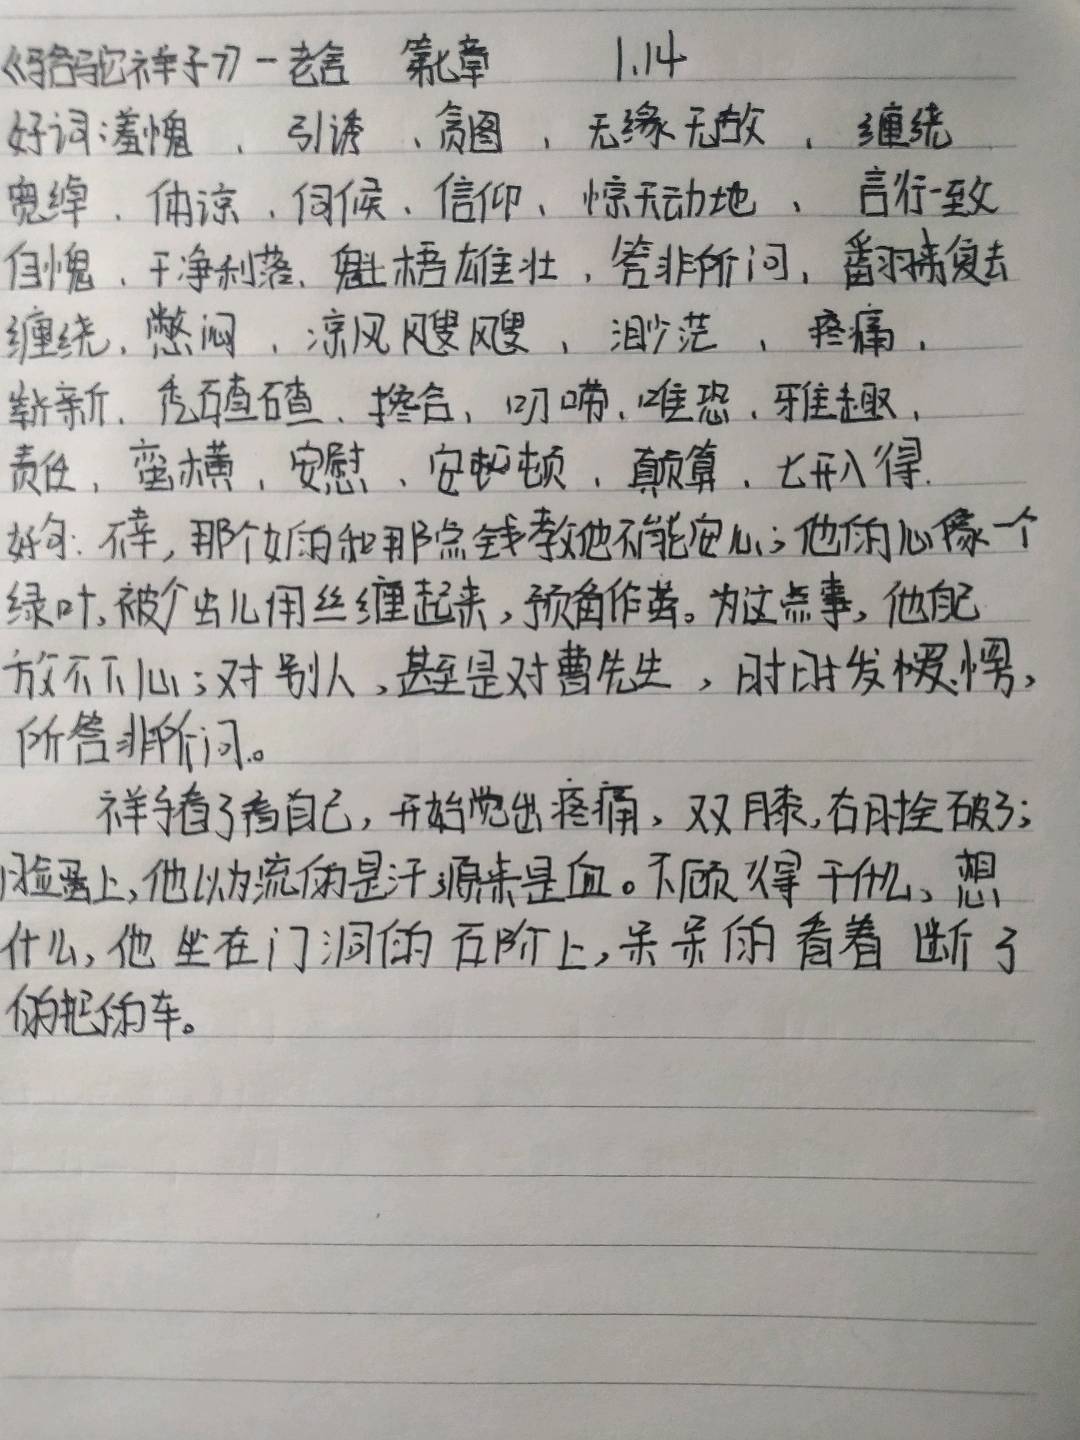 《骆驼祥子》-老舍 第七章 1.14
好词:羞愧、引诱、贪图、无缘无故、缠绕
宽绰、体谅、伺候、信仰、惊天动地、言行一致
自愧、干净利落、魁梧雄壮、答非所问、翻来复去
缠绕、憋闷、凉风飕飕、渺茫、疼痛、
崭新、秃碴碴、搀合、叨唠、唯恐、雅趣、
责任、蛮横、安慰、安顿、颠算、七开八得.
好句:不幸,那个女的和那点钱教他不能安心;他的心像一个
绿叶,被个虫儿用丝缠起来,预备作茧。为这点事,他自己
放不下心;对别人,甚至是对曹先生,时时发愣,
所答非所问。
祥子看了看自己,开始觉出疼痛,双膝,右肘全破了;
脸蛋上,他以为流的是汗,原来是血。不顾得干什么,想
什么,他坐在门洞的石阶上,呆呆的看着断了
的把的车。